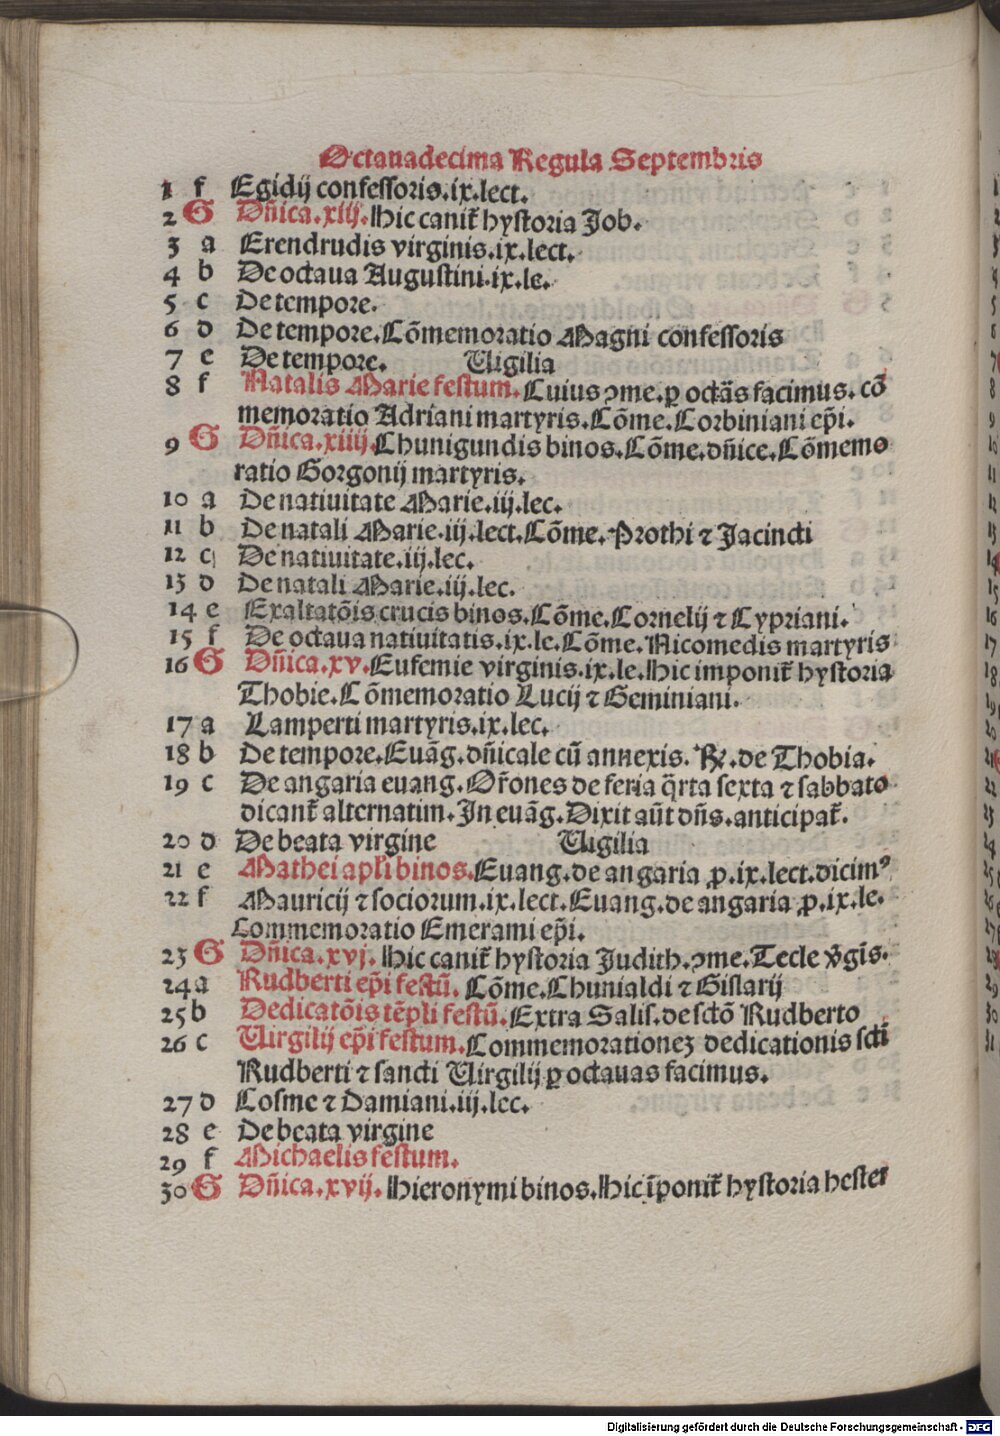 Octauadecima Regula Septembris
1 f Egidij confessoris.ix.lect.
2 G Dñica.xiij.Hic canit᷑ hystoria Job.
3 a Erendrudis virginis.ix.lect.
4 b De octaua Augustini.ix.le.
5 c De tempore.
6 d De tempore.Cõmemoratio Magni confessoris
7 e De tempore. Uigilia
8 f Natalis Marie festum.Cuius ↄme.ꝑ octãs facimus.cõ
memoratio Adriani martyris.Cõme.Corbiniani ep̃i.
9 G Dñica.xiiij.Chunigundis binos.Cõme.dñice.Cõmemo
ratio Gorgonij martyris.
10 a De natiuitate Marie.iij.lec.
11 b De natali Marie.iij.lect.Cõme.Prothi ⁊ Jacincti
12 c De natiuitate.iij.lec.
13 d De natali Marie.iij.lec.
14 e Exaltatõis crucis binos.Cõme.Cornelij ⁊ Cypriani.
15 f De octaua natiuitatis.ix.le.Cõme.Nicomedis martyris
16 G Dñica.xv.Eufemie virginis.ix.le.Hic imponit᷑ hystoria
Thobie.Cõmemoratio Lucij ⁊ Geminiani.
17 a Lamperti martyris.ix.lec.
18 b De tempore.Euãg.dñicale cũ annexis.℞.de Thobia.
19 c De angaria euang.Or̃ones de feria q̃rta sexta ⁊ sabbato
dicant᷑ alternatim.In euãg.Dixit aũt dñs.anticipat᷑.
20 d De beata virgine Uigilia
21 e Mathei apl̃i binos.Euang.de angaria ꝓ.ix.lect.dicimꝰ
22 f Mauricij ⁊ sociorum.ix.lect.Euang.de angaria ꝓ.ix.le.
Commemoratio Emerami ep̃i.
23 G Dñica.xvj.Hic canit᷑ hystoria Judith.ↄme.Tecle v̓gĩs.
24 a Rudberti ep̃i festũ.Cõme.Chunialdi ⁊ Gislarij
25 b Dedicatõis tẽpli festũ.Extra Salis.de sctõ Rudberto
26 c Uirgilij ep̃i festum.Commemorationeꝫ dedicationis sctĩ
Rudberti ⁊ sancti Uirgilij ꝑ octauas facimus.
27 d Cosme ⁊ Damiani.iij.lec.
28 e De beata virgine
29 f Michaelis festum.
30 G Dñica.xvij.Hieronymi binos.Hic ĩponit᷑ hystoria hester
Digitalisierung gefördert durch die Deutsche Forschungsgemeinschaft - DFG